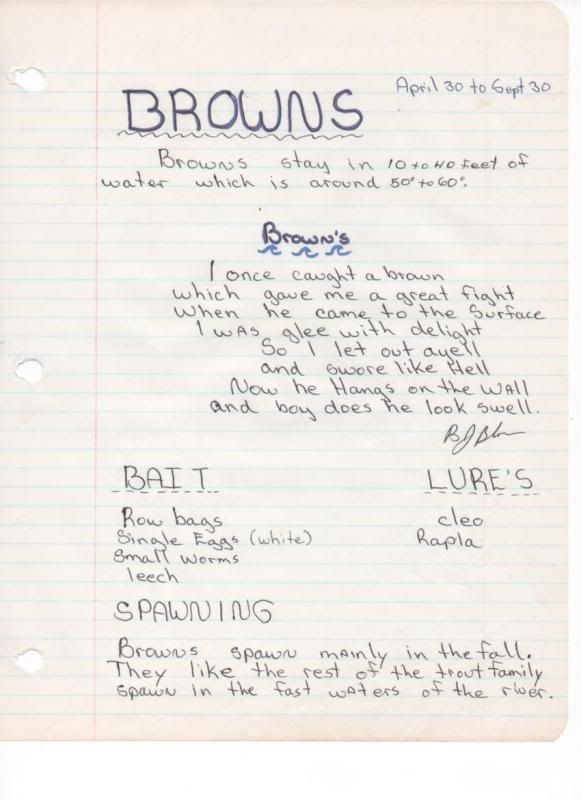 April 30 to Sept 30
BROWNS
Browns stay in 10 to 40 feet of
water which is around 50° to 60°.
Brown's
I once caught a brown
which gave me a great fight
When he came to the Surface
I was glee with delight
So I let out a yell
and swore like Hell
Now he Hangs on the Wall
and boy does he look swell.
BAIT
LURE'S
Row bags
cleo
Single Eggs (white)
Rapla
Small Worms
leech
SPAWNING
Browns spawn mainly in the fall.
They like the rest of the trout family
spawn in the fast waters of the river.